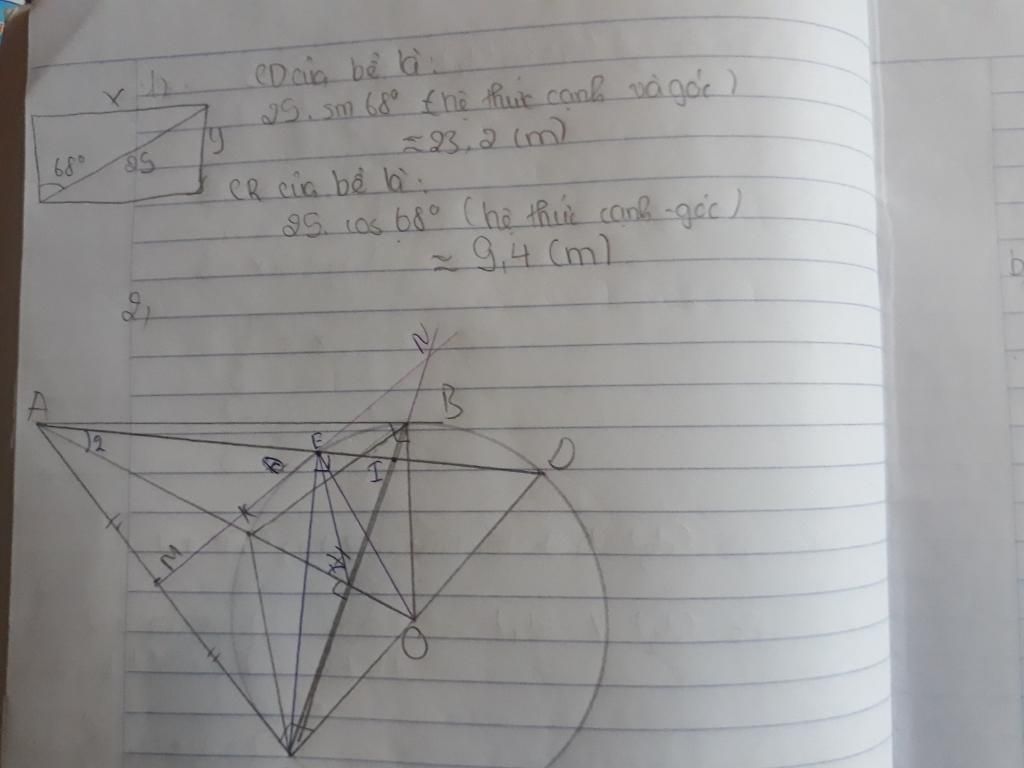 1,
CD của bể là:
25. sin 68° (hệ thức cạnh và góc)
≈ 23,2 (m)
x
y
68°
25
CR của bể là:
25. cos 68° (hệ thức cạnh-góc)
≈ 9,4 (m)
b,
2,
N
A
B
E
D
12
I
K
M
H
O